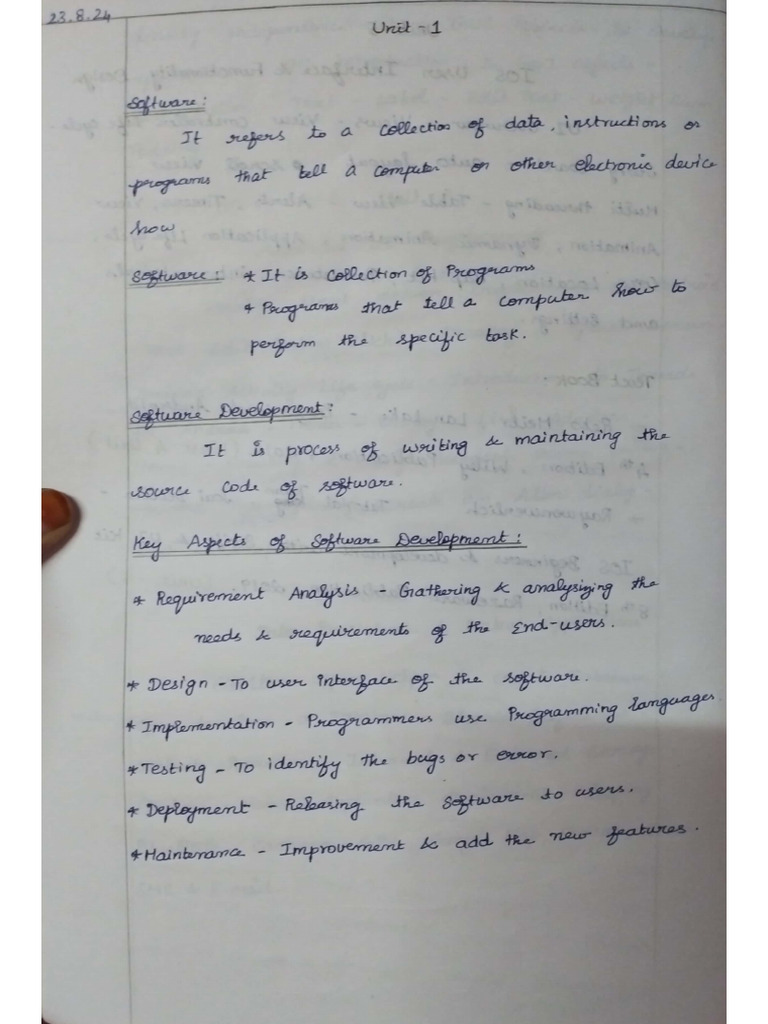 23.8.24
Unit - 1
Software:
It refers to a collection of data, instructions or
programs that tell a computer or other electronic device
how
Software: * It is collection of Programs
* Programs that tell a computer how to
perform the specific task.
Software Development:
It is process of writing & maintaining the
source code of software.
Key Aspects of Software Development:
* Requirement Analysis - Gathering & analysizing the
needs & requirements of the End-users.
* Design - To user interface of the software.
* Implementation - Programmers use Programming languages.
* Testing - To identify the bugs or error.
* Deployment - Releasing the software to users.
* Maintenance - Improvement & add the new features.